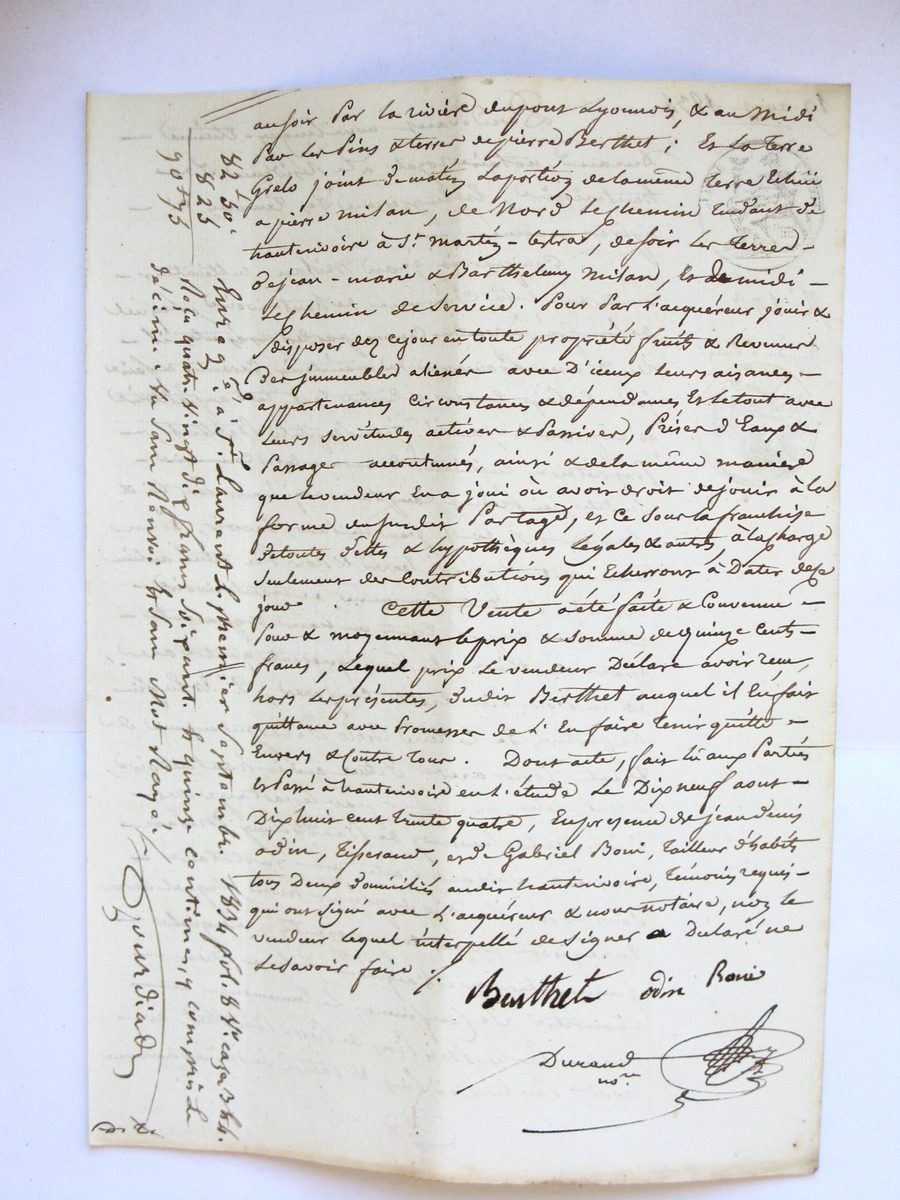 au soir par la rivière du pont Lyonnois, & au midi
par les Pins & terres de pierre Berthet ; Et la Terre
Grelo joint de matin la portion de la même terre Echüe
a pierre milan, de Nord le chemin Tendant de
hauterivoire à St. martin-lestra, de soir les Terres
de jean-marie & Barthelemy milan, Et de midi
le chemin de service. Pour par l'acquéreur jouir &
disposer dez ce jour en toute propriété fruits & Revenus
des immeubles aliénés avec D'iceux leurs aisances
appartenances circonstances & dépendances Et le tout avec
leurs servitudes actives & Passives, Prises d'Eaux &
Passages accoutumés, ainsi & de la même manière
que le vendeur En a joui où avoir droit de jouir à la
forme du susdit Partage, et ce sous la franchise
de toutes dettes & hypothèques légales & autres, à la charge
seulement des Contributions qui Echerront à Dater de ce
jour. Cette Vente a été faite & Convenue
pour & moyennant le prix & somme de quinze cents
francs, lequel prix le vendeur Déclare avoir reçu,
hors les présentes, dudit Berthet auquel il En fait
quittance avec Promesses de l'En faire Tenir quitte
Envers & Contre Tous. Dont acte, fait lû aux Parties
Et Passé à hauterivoire en l'étude Le Dix neuf aout
Dix huit cent trente quatre, En presence de jean denis
odin, Tisserand, et de Gabriel Boni, Tailleur d'habits
tous Deux domiciliés audit hauterivoire, Témoins requis
qui ont signé avec L'acquéreur & nous notaire, non le
vendeur lequel interpellé de signer a Déclaré ne
Le savoir faire ./.
Berthet odin Boni
Durand
nore
82 50
8 25
90 75
Enreg. à St. Laurent le premier Septembre 1834 fol. 8 Vo.
Reçu quatre vingt dix francs soixante & quinze centimes, y compris le
décime. Un sans Renvoi Et sans Mot Rayé.